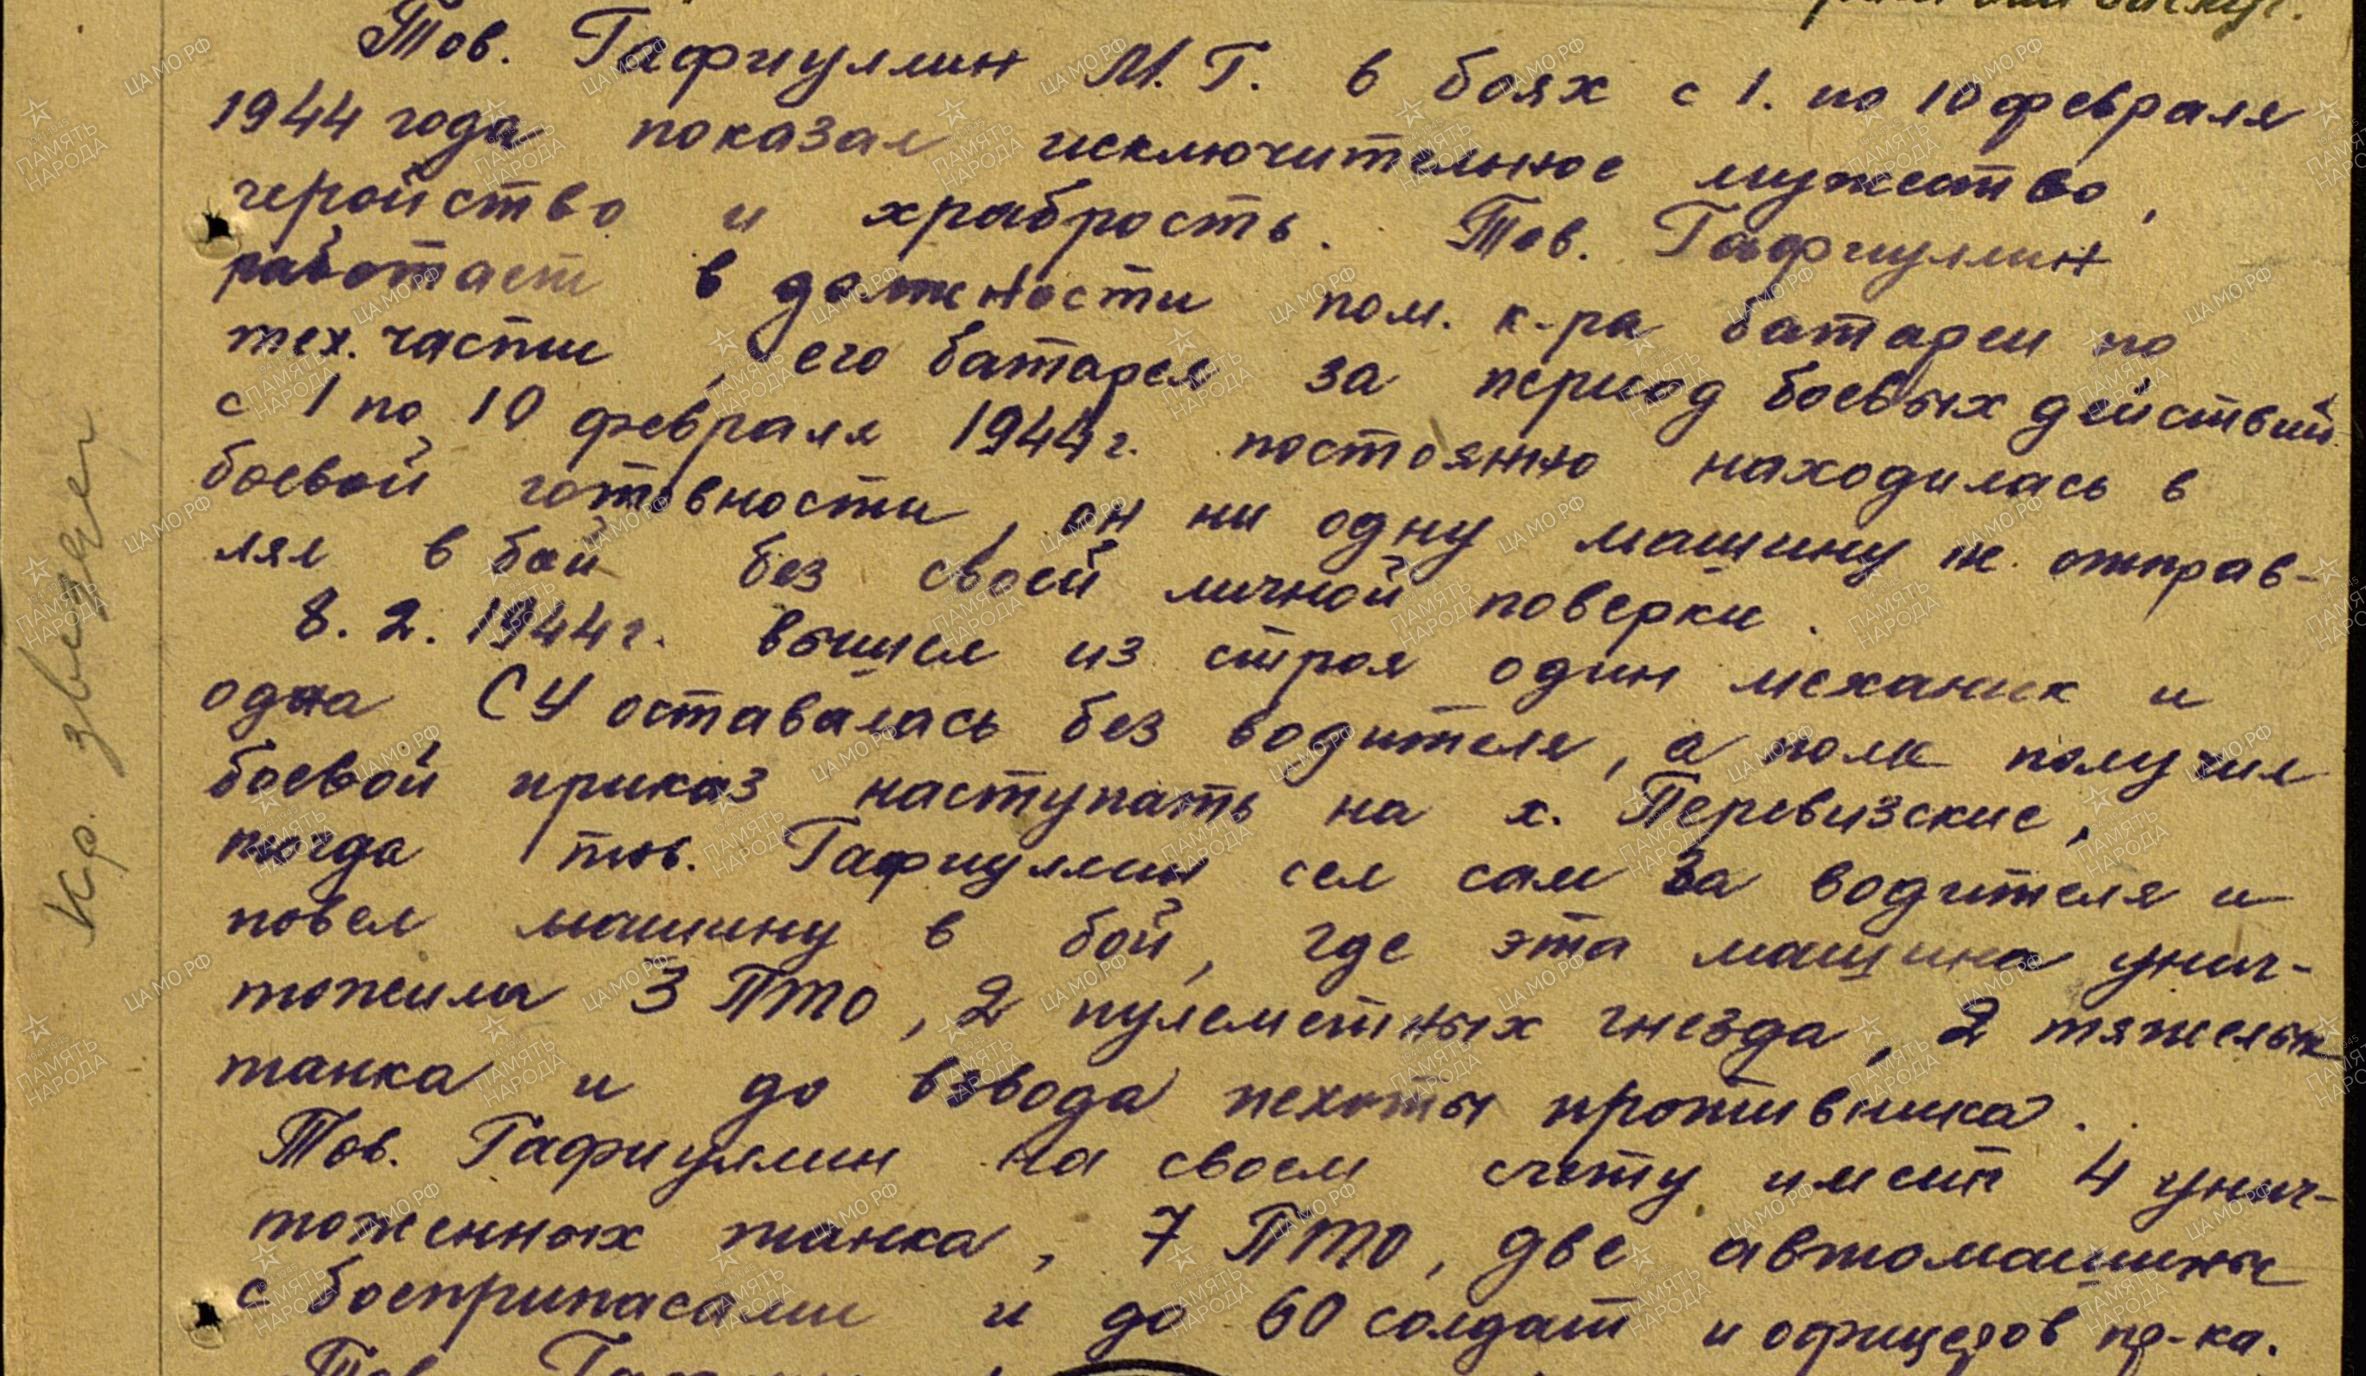 Тов. Гафиуллин М. Г. в боях с 1. по 10 февраля
1944 года показал исключительное мужество,
геройство и храбрость. Тов. Гафиуллин
работает в должности пом. к-ра батареи по
тех. части, его батарея за период боевых действий
с 1 по 10 февраля 1944 г. постоянно находилась в
боевой готовности, он ни одну машину не отправ-
лял в бой без своей личной поверки.
8. 2. 1944 г. вышел из строя один механик и
одна СУ оставалась без водителя, а полк получил
боевой приказ наступать на х. Перевизские,
тогда тов. Гафиуллин сел сам за водителя и
повел машину в бой, где эта машина унич-
тожила 3 ПТО, 2 пулеметных гнезда, 2 тяжелых
танка и до взвода пехоты противника.
Тов. Гафиуллин на своем счету имеет 4 унич-
тоженных танка, 7 ПТО, две автомашины
с боеприпасами и до 60 солдат и офицеров пр-ка.
Тов.
Кр. звезды
ЦАМО.РФ
ПАМЯТЬ НАРОДА
1941-1945